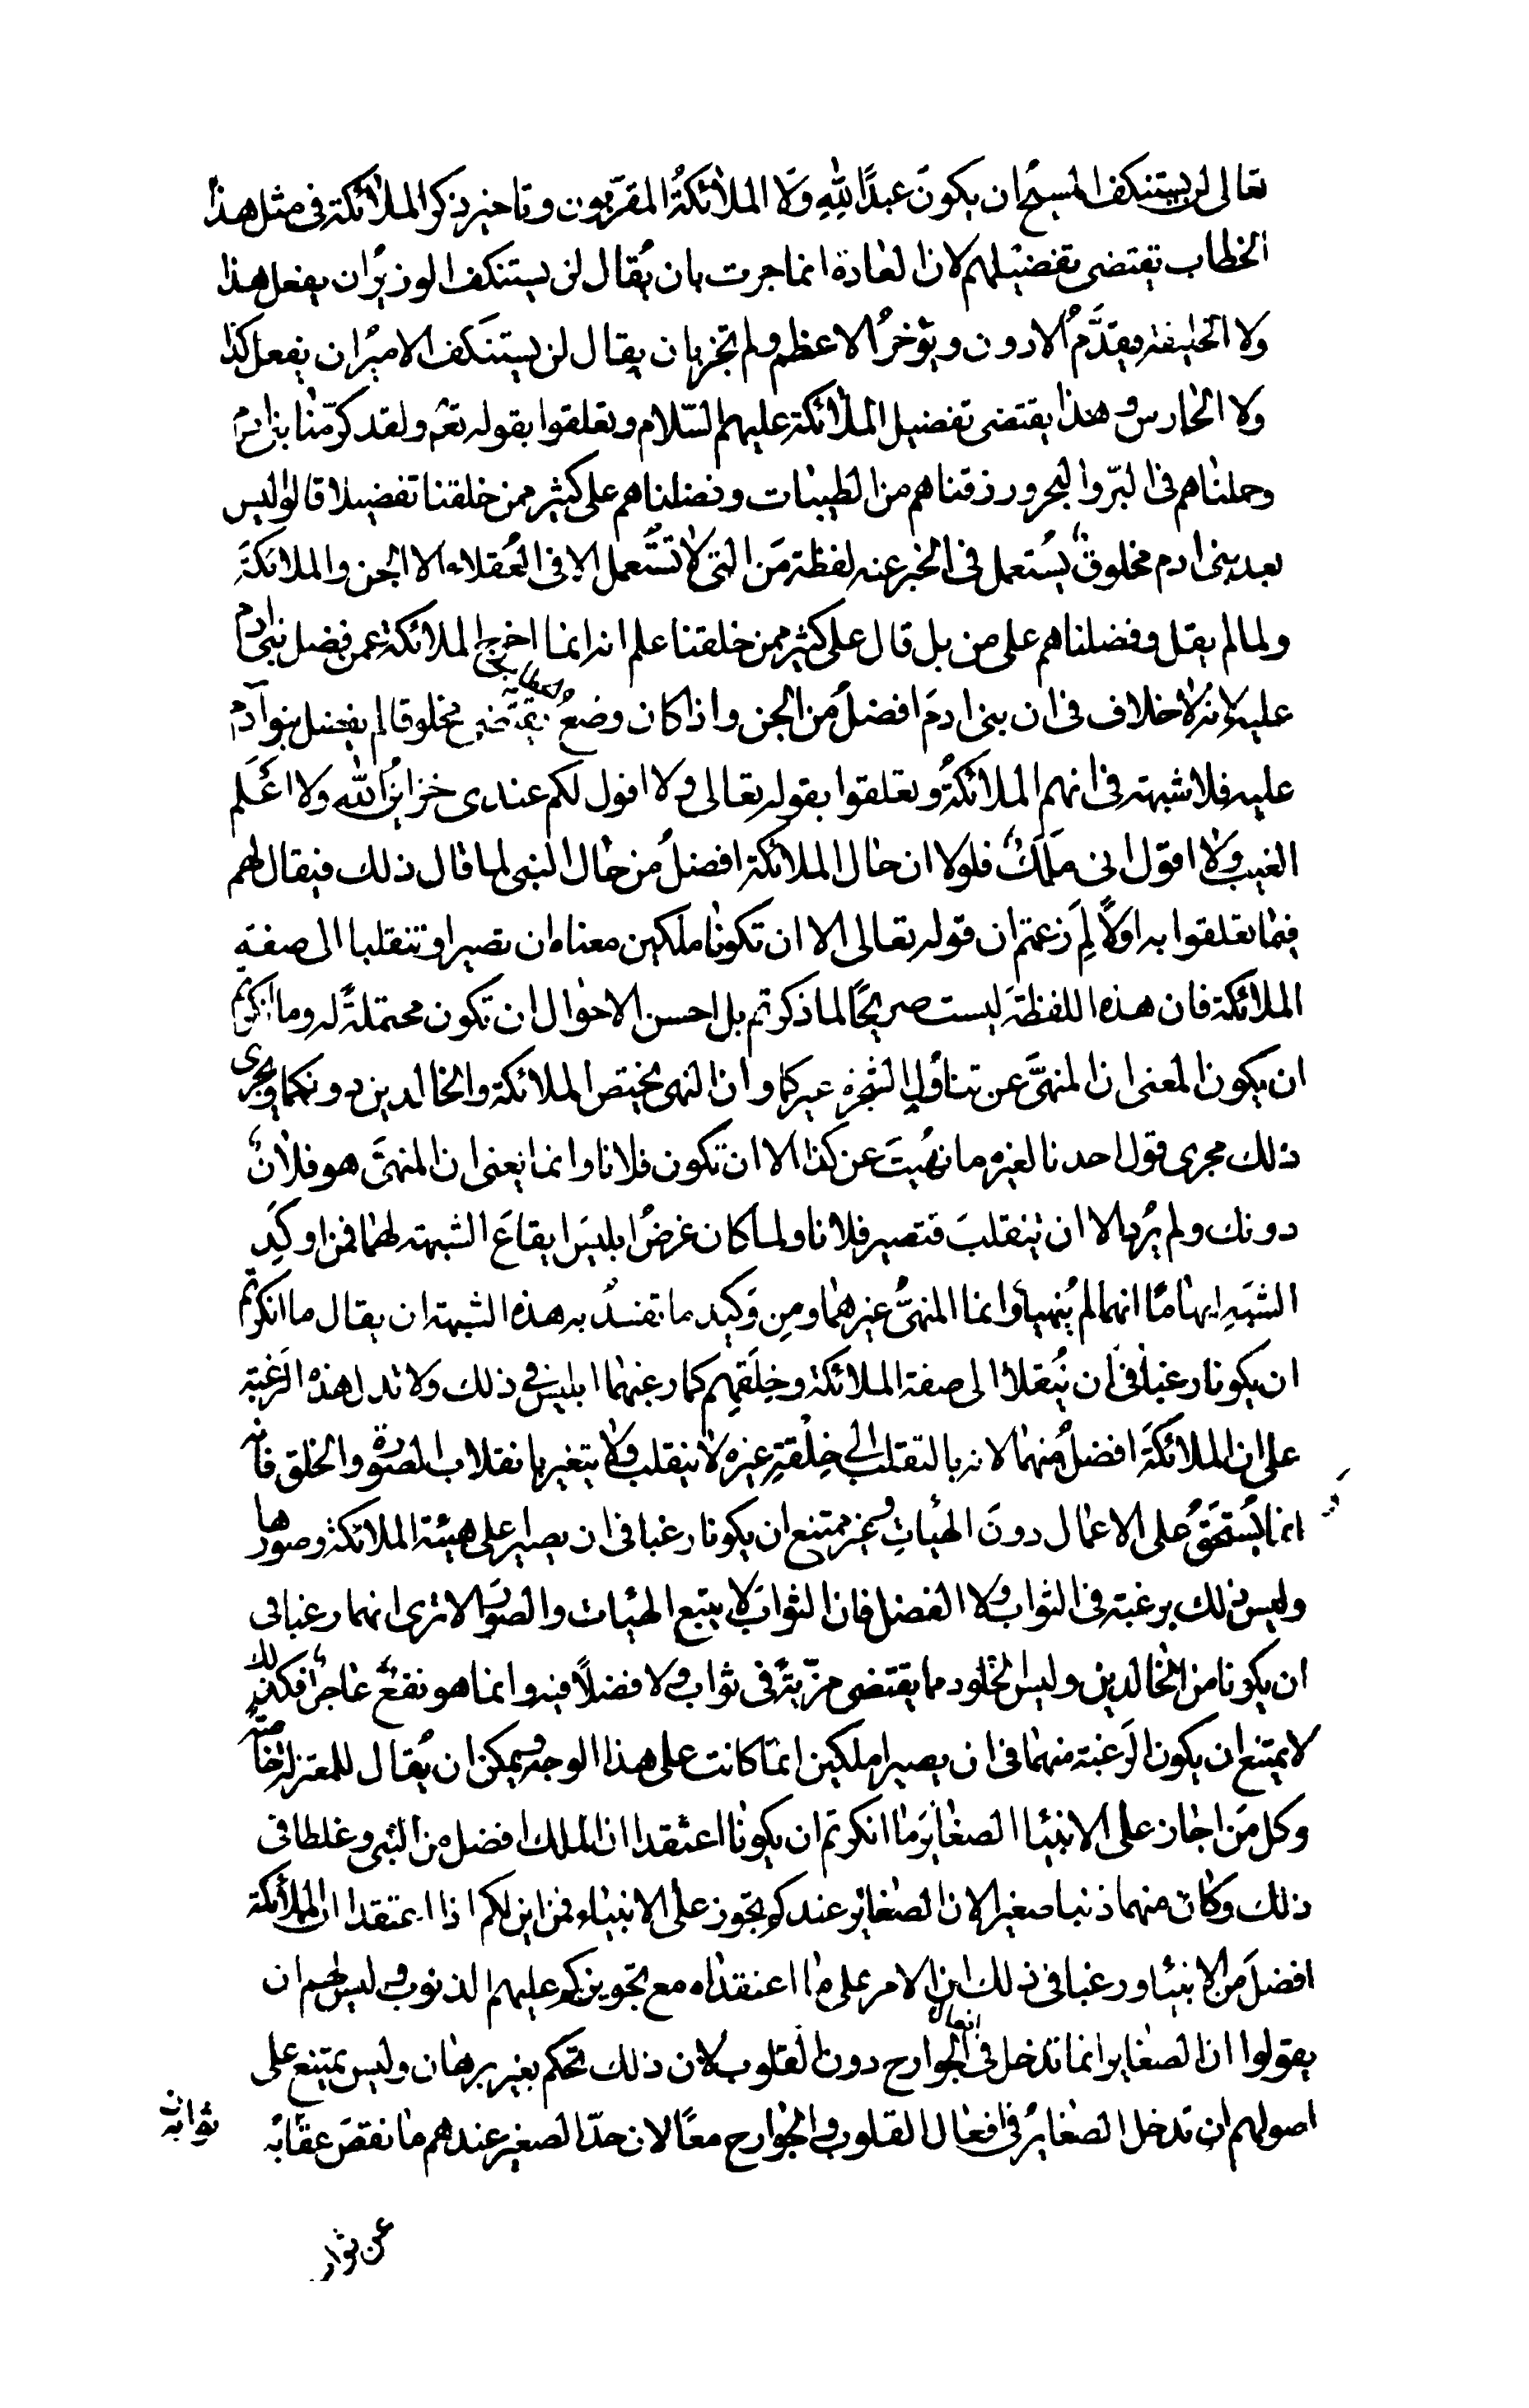 تعالى لن يستنكف المسيح ان يكونَ عبدًا للهِ وَلا الملائكةُ المقرّبون وتاخير ذكر الملائكة فى مثل هذا
الخطاب تقتضى تفضيلهم لان العادة انما جرت بان يُقال لن يستنكف الوزيرُ ان يفعل هذا
ولا الخليفة فيقدَّمُ الادون ويؤخرُ الاعظم ولم تجر بان يقال لن يستنكف الاميرُ ان يفعل كذا
ولا الحارس وهذا يقتضى تفضيل الملائكة عليهم السّلام وتعلقوا بقوله تعٰم ولقد كرّمنا بنى ادم
وحملناهم فى البرّ والبحر ورزقناهم من الطيبات وفضلناهم على كثير ممن خلقنا تفضيلا قالوا ليس
بعد بنى ادم مخلوقٌ يُستعمل فى الخبر عنه لفظة مَن التى لا تُستعمل الا فى العُقلاء الا الجن والملائكةَ
ولما لم يقل وفضلناهم على من بل قال على كثير ممن خلقنا علم انه انما اخرج الملائكة عمن فضل بنى ادم
عليه لانه لا خلاف فى ان بنى ادمَ افضلُ من الجن واذا كان وضعُ الخطاب يقتضى مخلوقا لم يفضل بنو آدم
عليه فلا شبهة فى انهم الملائكةُ وتعلقوا بقوله تعالى ولا اقول لكم عندى خزائنُ اللهِ ولا اعْلم
الغيب ولا اقول انى مَلَكٌ فلولا ان حال الملائكة افضلُ من حال النبى لما قال ذلك فيقال لهم
فيما تعلقوا به اولًا لِمَ زعمتم ان قوله تعالى الا ان تكونا ملكين معناه ان تصيرا وتنقلبا الى صفة
الملائكة فان هذه اللفظةَ ليست صريحًا لما ذكرتم بل احسن الاحوال ان تكون محتملةً له وما انكرتم
ان يكون المعنى ان المنهىَّ عن تناول الشجرة غيركما وان النهى يختص الملائكة والخالدين دونكما ويجرى
ذلك مجرى قول احدنا لغيره ما نهُيتَ عن كذا الا ان تكون فلانا وانما يعنى ان المنهىَّ هو فلانٌ
دونك ولم يُرد الا ان ينقلبَ فتصير فلانا ولما كان غرضُ ابليسَ ايقاعَ الشبهة لهما فمن اوكَدِ
الشبَهِ ايهامًا انهما لم يُنهيا وانما المنهىُّ غيرهما ومِن وَكيد ما تفسدُ به هذه الشبهة ان يقال ما انكرتم
ان يكونا رغبا فى ان يُنقلا الى صفة الملائكة وخِلَقِهم كما رغبهما ابليس فى ذلك ولا تدل هذه الرَغبة
على ان الملائكةَ افضلُ منهما لانه بالتقلب الى خِلْقةِ غيره لا ينقلب ولا يتغير بانقلاب الصورة والخلق فانه
انما يُستَحَقُّ على الاعمال دونَ الهيْاتِ وغير ممتنع ان يكونا رغبا فى ان يصيرا على هيئة الملائكة وصورها
وليس ذلك برغبة فى الثواب ولا الفضل فان الثوابَ لا يتبع الهيْات والصوَر الا ترى انهما رغبا فى
ان يكونا من الخالدين وليس الخلود مما يقتضى مزيّةً فى ثواب ولا فضلًا فيه وانما هو نفعٌ عاجلٌ فكذلك
لا يمتنع ان يكون الرَغبة منهما فى ان يصيرا ملكين انما كانت على هذا الوجه ويمكن ان يُقال للمعتزلة خاصّة
وكل مَن اجاز على الانبيْا الصغائرَ ما انكرتم ان يكونا اعتقدا ان الملك افضل من النبى وغلطا فى
ذلك وكان منهما ذنبا صغيرا لان الصغائر عندكم تجوز على الانبياء فمن اين لكم اذا اعتقدا ان الملائكة
افضلَ من الانبيْا ورغبا فى ذلك ان الامر على ما اعتقداه مع تجويزكم عليهم الذنوب وليس لهم ان
يقولوا ان الصغاير انما تدخل فى افعال الجوارح دون القلوب لان ذلك تحكم بغير برهان وليس يمتنع على
اصولهم ان تدخل الصغايرُ فى افعال القلوب والجوارح معًا لان حدّ الصغير عندهم ما نقصَ عقابُه
ثوابه
عن ثوا